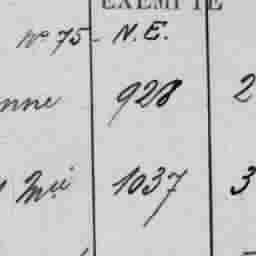 EXEMPTE
No 75 - N.E.
nne 928 2
Mlle 1037 3